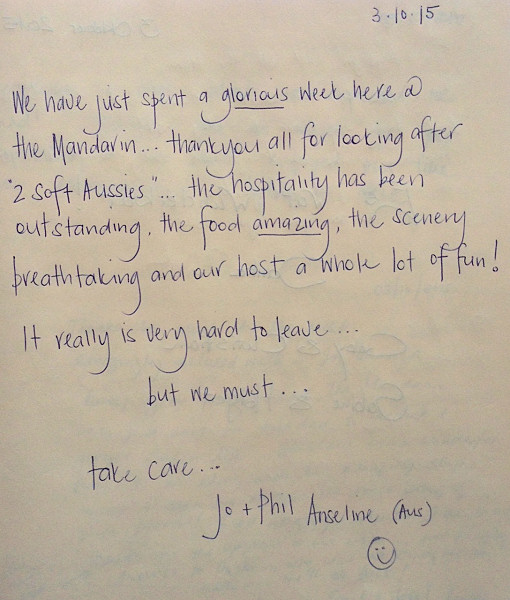 3.10.15
We have just spent a glorious week here @
the Mandarin... thankyou all for looking after
"2 soft Aussies"... the hospitality has been
outstanding, the food amazing, the scenery
breathtaking and our host a whole lot of fun!
It really is very hard to leave...
but we must...
take care...
Jo + Phil Anseline (Aus)